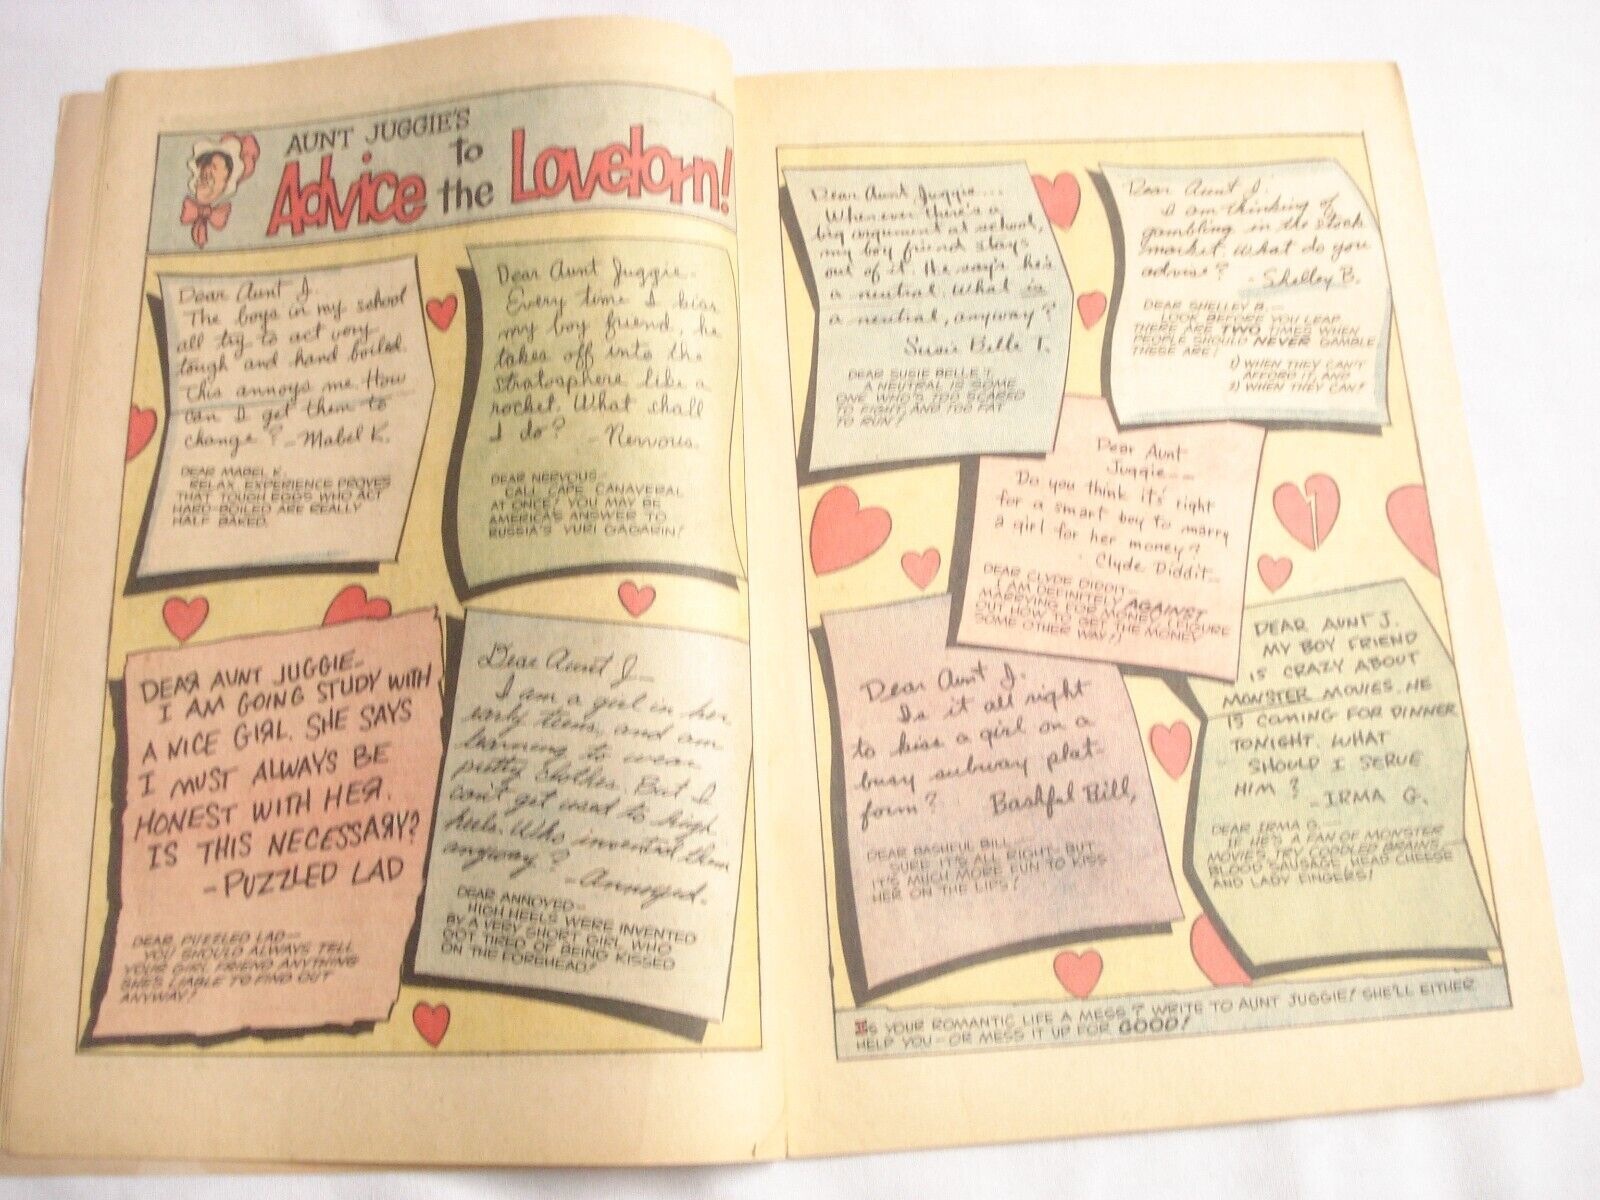 AUNT JUGGIE'S
Advice to the Lovelorn!
Dear Aunt J.
The boys in my school
all try to act very
tough and hard boiled.
This annoys me. How
can I get them to
change? - Mabel K.
DEAR MABEL K.
RELAX. EXPERIENCE PROVES
THAT TOUGH EGGS WHO ACT
HARD-BOILED ARE REALLY
HALF BAKED.
Dear Aunt Juggie-
Every time I kiss
my boy friend, he
takes off into the
stratosphere like a
rocket. What shall
I do? -Nervous.
DEAR NERVOUS-
CALL CAPE CANAVERAL
AT ONCE! YOU MAY BE
AMERICA'S ANSWER TO
RUSSIA'S YURI GAGARIN!
DEAЯ AUNT JUGGIE-
I AM GOING STUDY WITH
A NICE GIЯL. SHE SAYS
I MUST ALWAYS BE
HONEST WITH HEЯ.
IS THIS NECESSAЯY?
-PUZZLED LAD
DEAR PUZZLED LAD-
YOU SHOULD ALWAYS TELL
YOUR GIRL FRIEND ANYTHING
SHE'S LIABLE TO FIND OUT
ANYWAY!
Dear Aunt J-
I am a girl in her
early teens, and am
learning to wear
pretty clothes. But I
can't get used to high
heels. Who invented them
anyway? -Annoyed.
DEAR ANNOYED-
HIGH HEELS WERE INVENTED
BY A VERY SHORT GIRL WHO
GOT TIRED OF BEING KISSED
ON THE FOREHEAD!
Dear Aunt Juggie...
Whenever there's a
big argument at school,
my boy friend stays
out of it. He says he's
a neutral. What is
a neutral, anyway?
Susie Belle T.
DEAR SUSIE BELLE T.
A NEUTRAL IS SOME
ONE WHO'S TOO SCARED
TO FIGHT, AND TOO FAT
TO RUN!
Dear Aunt J.
I am thinking of
gambling in the stock
market. What do you
advise?
- Shelley B.
DEAR SHELLEY B.-
LOOK BEFORE YOU LEAP.
THERE ARE TWO TIMES WHEN
PEOPLE SHOULD NEVER GAMBLE
THESE ARE:
1) WHEN THEY CAN'T
AFFORD IT, AND
2) WHEN THEY CAN!
Dear Aunt
Juggie--
Do you think it's right
for a smart boy to marry
a girl for her money?
- Clyde Diddit-
DEAR CLYDE DIDDIT-
I AM DEFINITELY AGAINST
MARRYING FOR MONEY! (FIGURE
OUT HOW TO GET THE MONEY
SOME OTHER WAY!)
Dear Aunt J.
Is it all right
to kiss a girl on a
busy subway plat-
form? Bashful Bill,
DEAR BASHFUL BILL-
SURE IT'S ALL RIGHT- BUT
IT'S MUCH MORE FUN TO KISS
HER ON THE LIPS!
DEAR AUNT J.
MY BOY FRIEND
IS CRAZY ABOUT
MONSTER MOVIES. HE
IS COMING FOR DINNER
TONIGHT. WHAT
SHOULD I SERVE
HIM?
-IRMA G.
DEAR IRMA G.-
IF HE'S A FAN OF MONSTER
MOVIES, TRY CODDLED BRAINS,
BLOOD SAUSAGE, HEAD CHEESE
AND LADY FINGERS!
IS YOUR ROMANTIC LIFE A MESS? WRITE TO AUNT JUGGIE! SHE'LL EITHER
HELP YOU- OR MESS IT UP FOR GOOD!